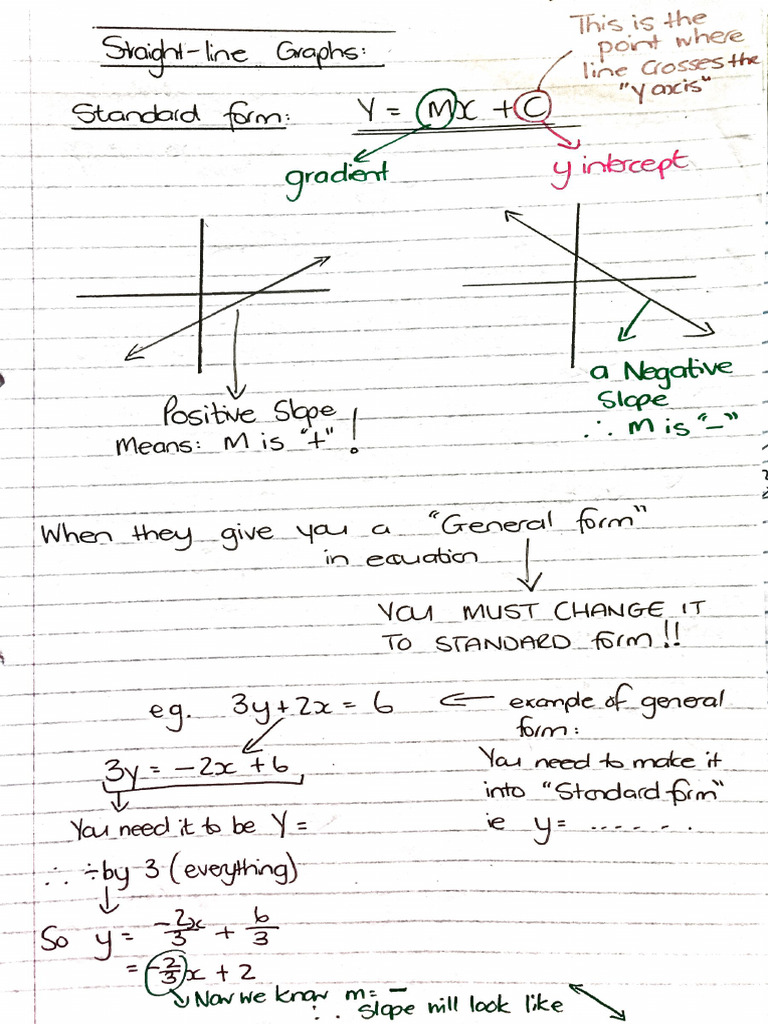 Straight-line Graphs:
This is the
point where
line crosses the
"Y axis"
Standard form: Y = Mx + C
gradient
y intercept
Positive Slope
Means: M is "+" !
a Negative
Slope
∴ M is "–"
When they give you a "General form"
in equation
YOU MUST CHANGE IT
TO STANDARD form!!
eg. 3y + 2x = 6 ← example of general
form:
3y = -2x + 6
You need to make it
into "Standard form"
ie y= ......
You need it to be Y =
∴ ÷ by 3 (everything)
So y = -2x/3 + 6/3
= -2/3 x + 2
Now we know m= –
∴ slope will look like